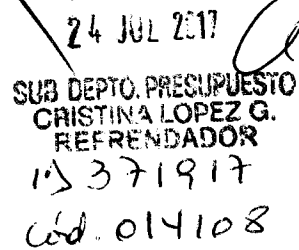 24 JUL 2017
SUB DEPTO. PRESUPUESTO
CRISTINA LOPEZ G.
REFRENDADOR
371917
Cód. 014108